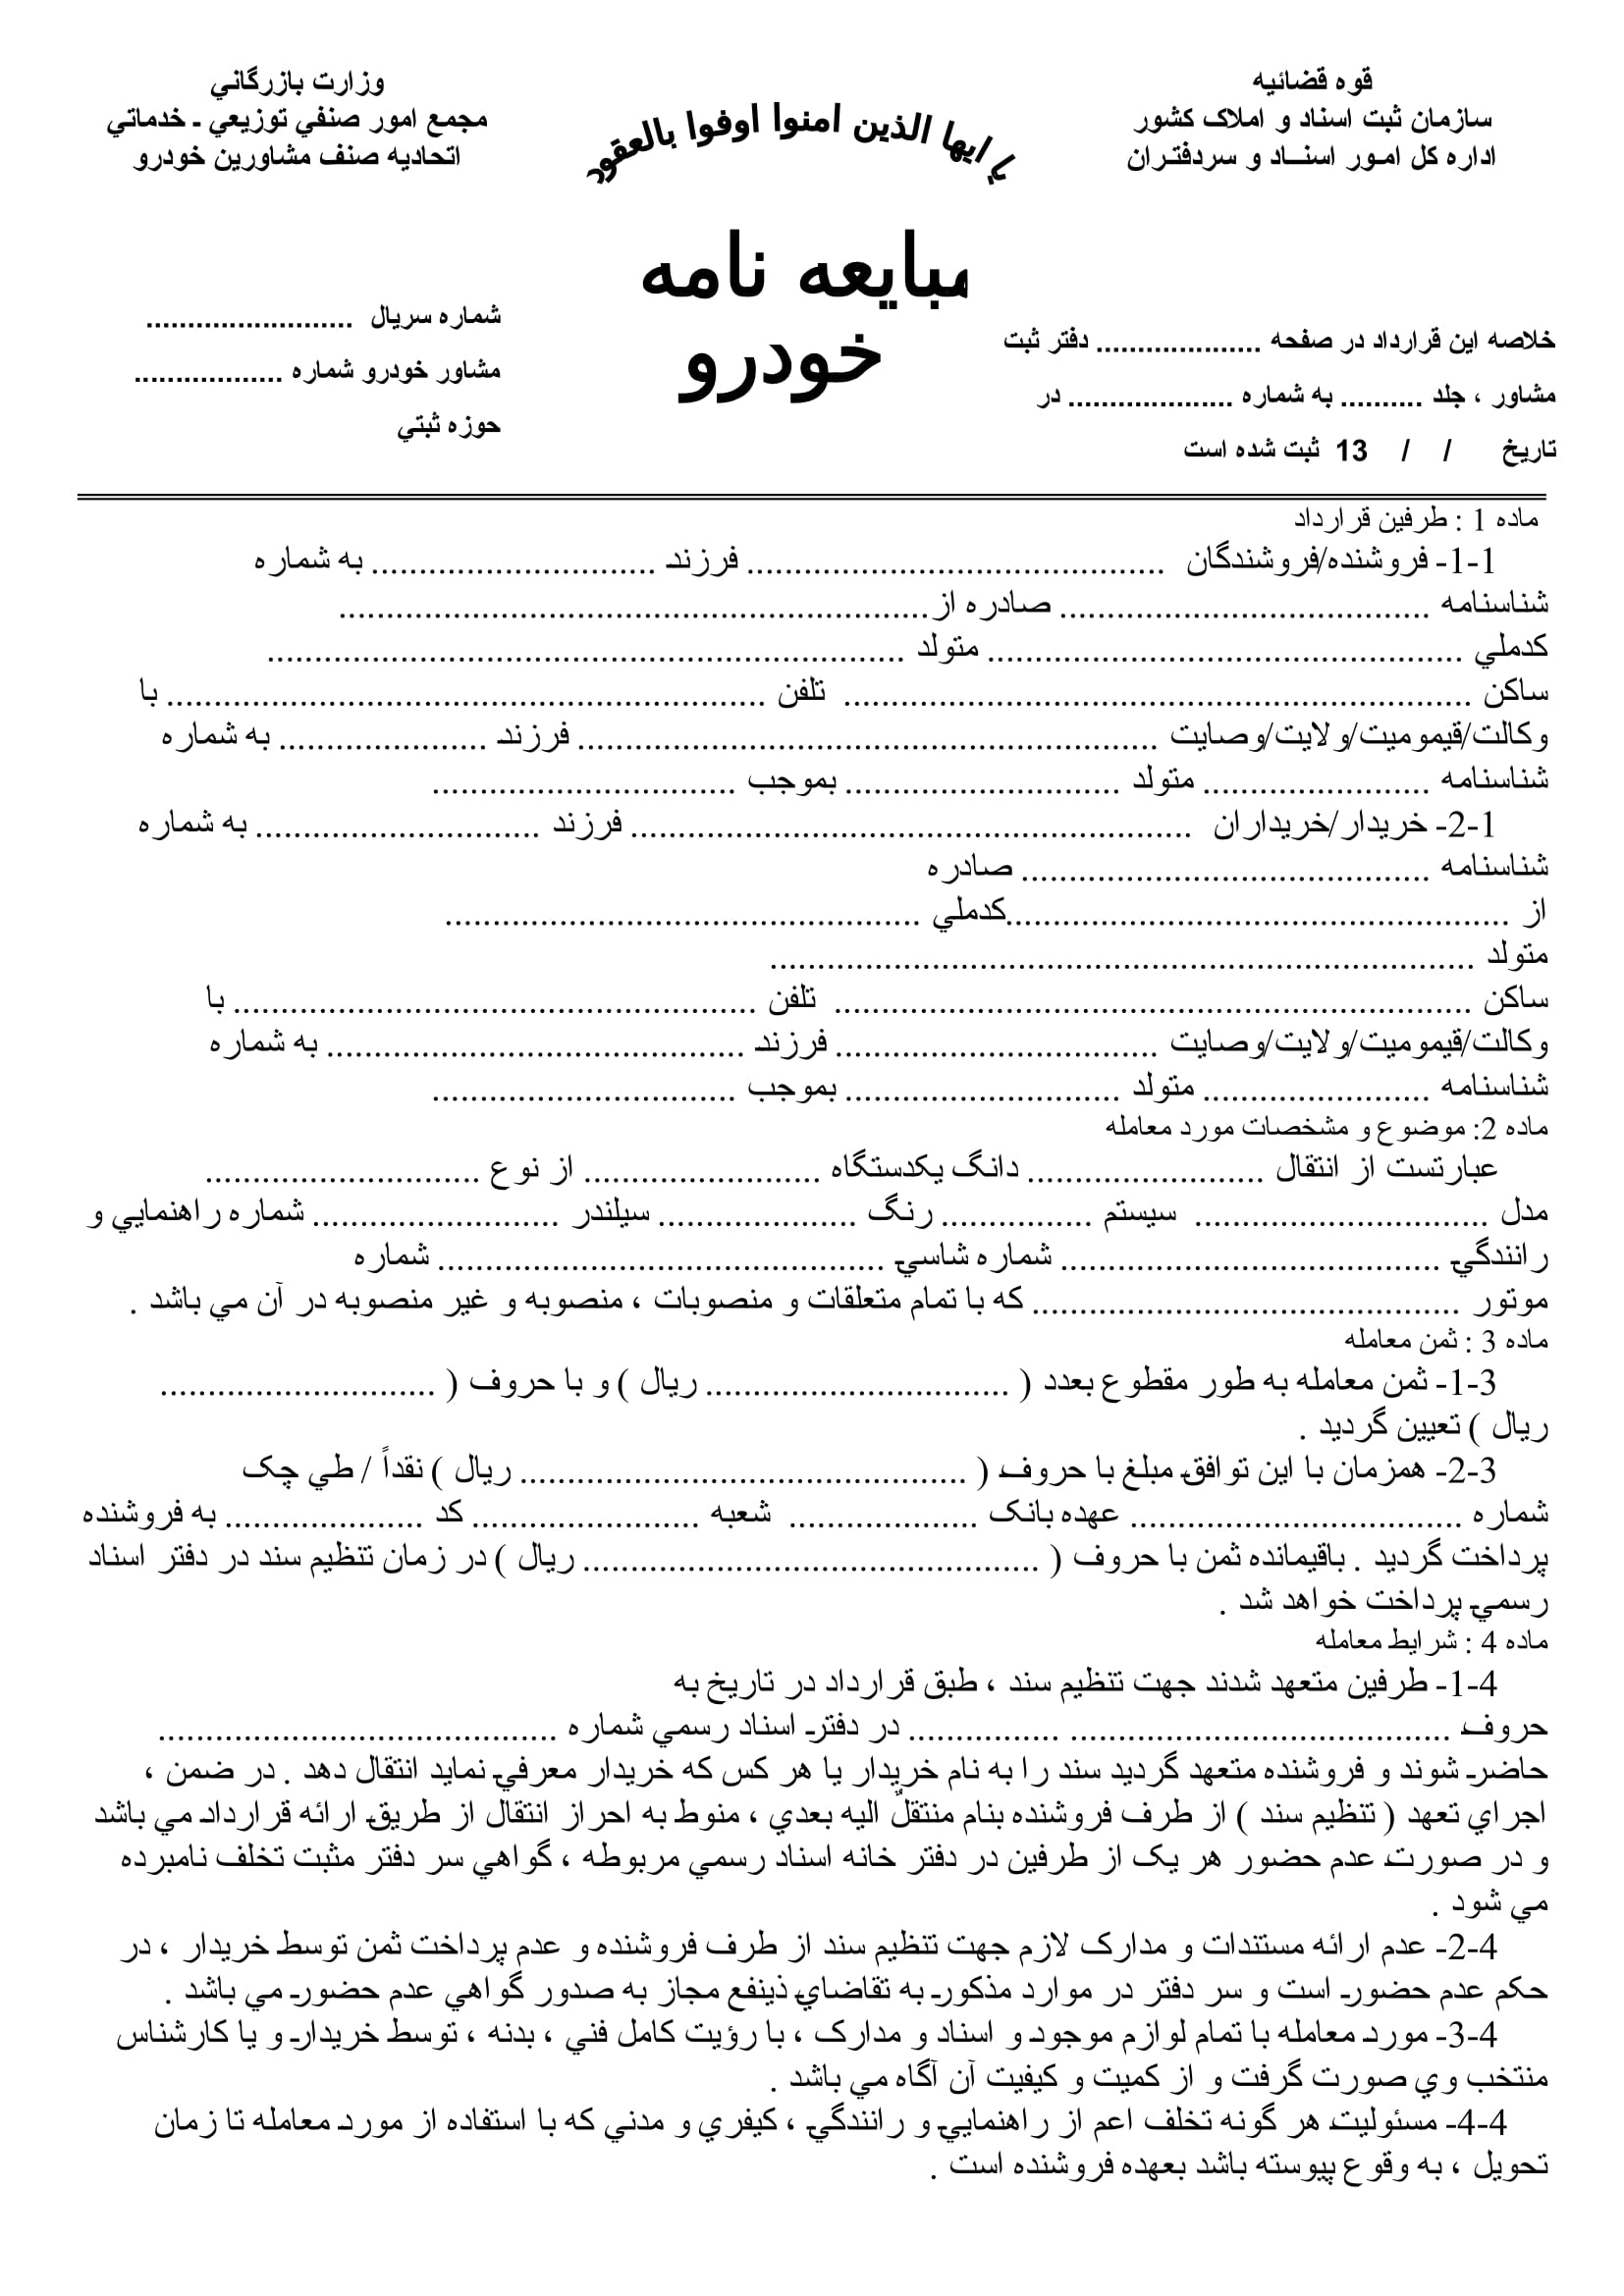 قوه قضائيه
سازمان ثبت اسناد و املاک کشور
اداره کل امـور اسنـــاد و سردفتـران
يا ايها الذين امنوا اوفوا بالعقود
وزارت بازرگاني
مجمع امور صنفي توزيعي ـ خدماتي
اتحاديه صنف مشاورين خودرو
مبايعه نامه
خودرو
خلاصه اين قرارداد در صفحه .................... دفتر ثبت
مشاور ، جلد .......... به شماره .................... در
تاريخ / / 13 ثبت شده است
شماره سريال .........................
مشاور خودرو شماره ..................
حوزه ثبتي
ماده 1 : طرفين قرارداد
1-1- فروشنده/فروشندگان ............................................ فرزند .............................. به شماره
شناسنامه ....................................... صادره از..............................................................
کدملي .................................................. متولد ...................................................................
ساکن .................................................................. تلفن ............................................................... با
وکالت/قيموميت/ولايت/وصايت ............................................................. فرزند ...................... به شماره
شناسنامه ........................ متولد ............................. بموجب ................................
1-2- خريدار/خريداران ........................................................... فرزند .............................. به شماره
شناسنامه ........................................... صادره
از .....................................................کدملي ..................................................
متولد ..........................................................................
ساکن ................................................................... تلفن ....................................................... با
وکالت/قيموميت/ولايت/وصايت .................................. فرزند ............................................ به شماره
شناسنامه ........................ متولد ............................. بموجب ................................
ماده 2: موضوع و مشخصات مورد معامله
عبارتست از انتقال ......................... دانگ يکدستگاه ......................... از نوع .............................
مدل ............................... سيستم ................ رنگ ..................... سيلندر .......................... شماره راهنمايي و
رانندگي ........................................ شماره شاسي ............................................... شماره
موتور ............................................. که با تمام متعلقات و منصوبات ، منصوبه و غير منصوبه در آن مي باشد .
ماده 3 : ثمن معامله
3-1- ثمن معامله به طور مقطوع بعدد ( ................................ ريال ) و با حروف ( .............................
ريال ) تعيين گرديد .
3-2- همزمان با اين توافق مبلغ با حروف ( ............................................... ريال ) نقداً / طي چک
شماره ................................... عهده بانک .................... شعبه ........................ کد ..................... به فروشنده
پرداخت گرديد . باقيمانده ثمن با حروف ( ................................................ ريال ) در زمان تنظيم سند در دفتر اسناد
رسمي پرداخت خواهد شد .
ماده 4 : شرايط معامله
4-1- طرفين متعهد شدند جهت تنظيم سند ، طبق قرارداد در تاريخ به
حروف ........................................ ................ در دفتر اسناد رسمي شماره ..........................................
حاضر شوند و فروشنده متعهد گرديد سند را به نام خريدار يا هر کس که خريدار معرفي نمايد انتقال دهد . در ضمن ،
اجراي تعهد ( تنظيم سند ) از طرف فروشنده بنام منتقلٌ اليه بعدي ، منوط به احراز انتقال از طريق ارائه قرارداد مي باشد
و در صورت عدم حضور هر يک از طرفين در دفتر خانه اسناد رسمي مربوطه ، گواهي سر دفتر مثبت تخلف نامبرده
مي شود .
4-2- عدم ارائه مستندات و مدارک لازم جهت تنظيم سند از طرف فروشنده و عدم پرداخت ثمن توسط خريدار ، در
حکم عدم حضور است و سر دفتر در موارد مذکور به تقاضاي ذينفع مجاز به صدور گواهي عدم حضور مي باشد .
4-3- مورد معامله با تمام لوازم موجود و اسناد و مدارک ، با رؤيت کامل فني ، بدنه ، توسط خريدار و يا کارشناس
منتخب وي صورت گرفت و از کميت و کيفيت آن آگاه مي باشد .
4-4- مسئوليت هر گونه تخلف اعم از راهنمايي و رانندگي ، کيفري و مدني که با استفاده از مورد معامله تا زمان
تحويل ، به وقوع پيوسته باشد بعهده فروشنده است .